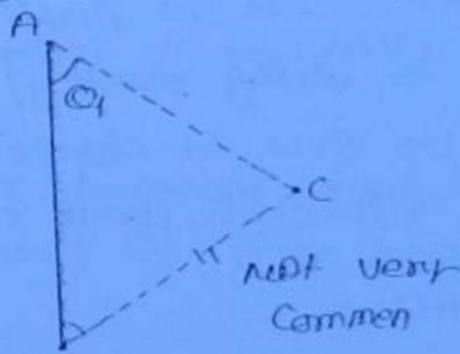 A
θ1
C
Not very
Common